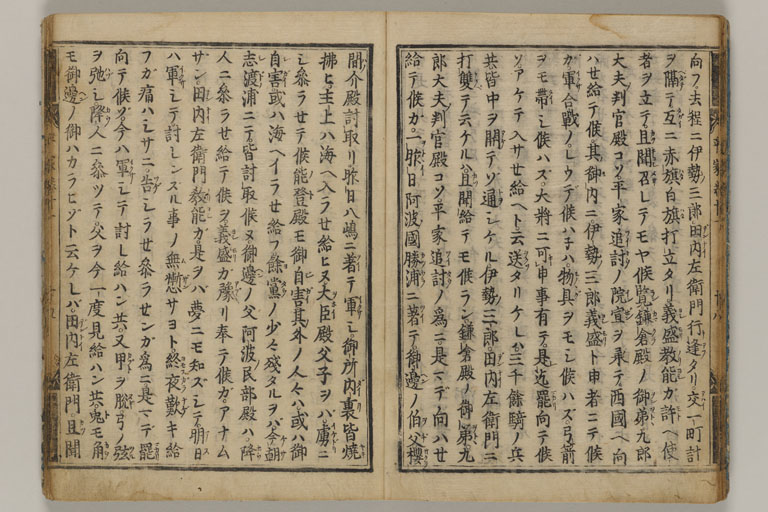 向フ去程ニ伊勢三郎田内左衛門行逢タリ交一町計
ヲ隔テ互ニ赤旗白旗打立タリ義盛教能カ許ヘ使
者ヲ立テ且聞召レテモヤ候覧鎌倉殿ノ御弟九郎
大夫判官殿コソ平家追討ノ院宣ヲ承テ西國ヘ向
ハせ給テ候其御内ニ伊勢三郎義盛ト申者ニテ候
カ軍合戰ノレウテ候ハチハ物具ヲモシ候ハズ弓箭
ヲモ帶シ候ハズ大將ニ可申事有テ是迄罷向テ候
ソアケテ入サせ給ヘト云送タリケレハ三千餘騎ノ兵
共皆中ヲ開テソ通シケル伊勢三郎田内左衛門ニ
打雙テ云ケルハ且聞給テモ候ラン鎌倉殿ノ御弟九
郎大夫判官殿コソ平家追討ノ為ニ是マテ向ハせ
給テ候カ一昨日阿波國勝浦ニ著テ御邊ノ伯父櫻
間介殿討取リ昨日八嶋ニ著テ軍シ御所内裏皆燒
拂ヒ主上ハ海ヘ入ラせ給ヒヌ大臣殿父子ヲハ虜ニ
シ参ラせテ候能登殿モ御自害其外ノ人々ハ或ハ御
自害或ハ海ヘイラせ給フ餘黨ノ少々殘タルヲハ今朝
志渡浦ニテ皆討取候ヌ御邊ノ父阿波民部殿ハ降
人ニ参ラせ給テ候ヲ義盛カ預リ奉テ候カアナム
ザン田内左衛門教能カ是ヲハ夢ニモ知ズシテ明日
ハ軍シテ討レンズル事ノ無慙サヨト終夜歎キ給
フカ痛ハシサニ告シラせ参ラせンカ為ニ是マテ罷
向テ候ソ今ハ軍シテ討レ給ハン共又甲ヲ脱弓ノ弦
ヲ弛シ降人ニ参ツテ父ヲ今一度見給ハン共兎モ角
モ御邊ノ御ハカラヒゾト云ケレバ田内左衛門且聞